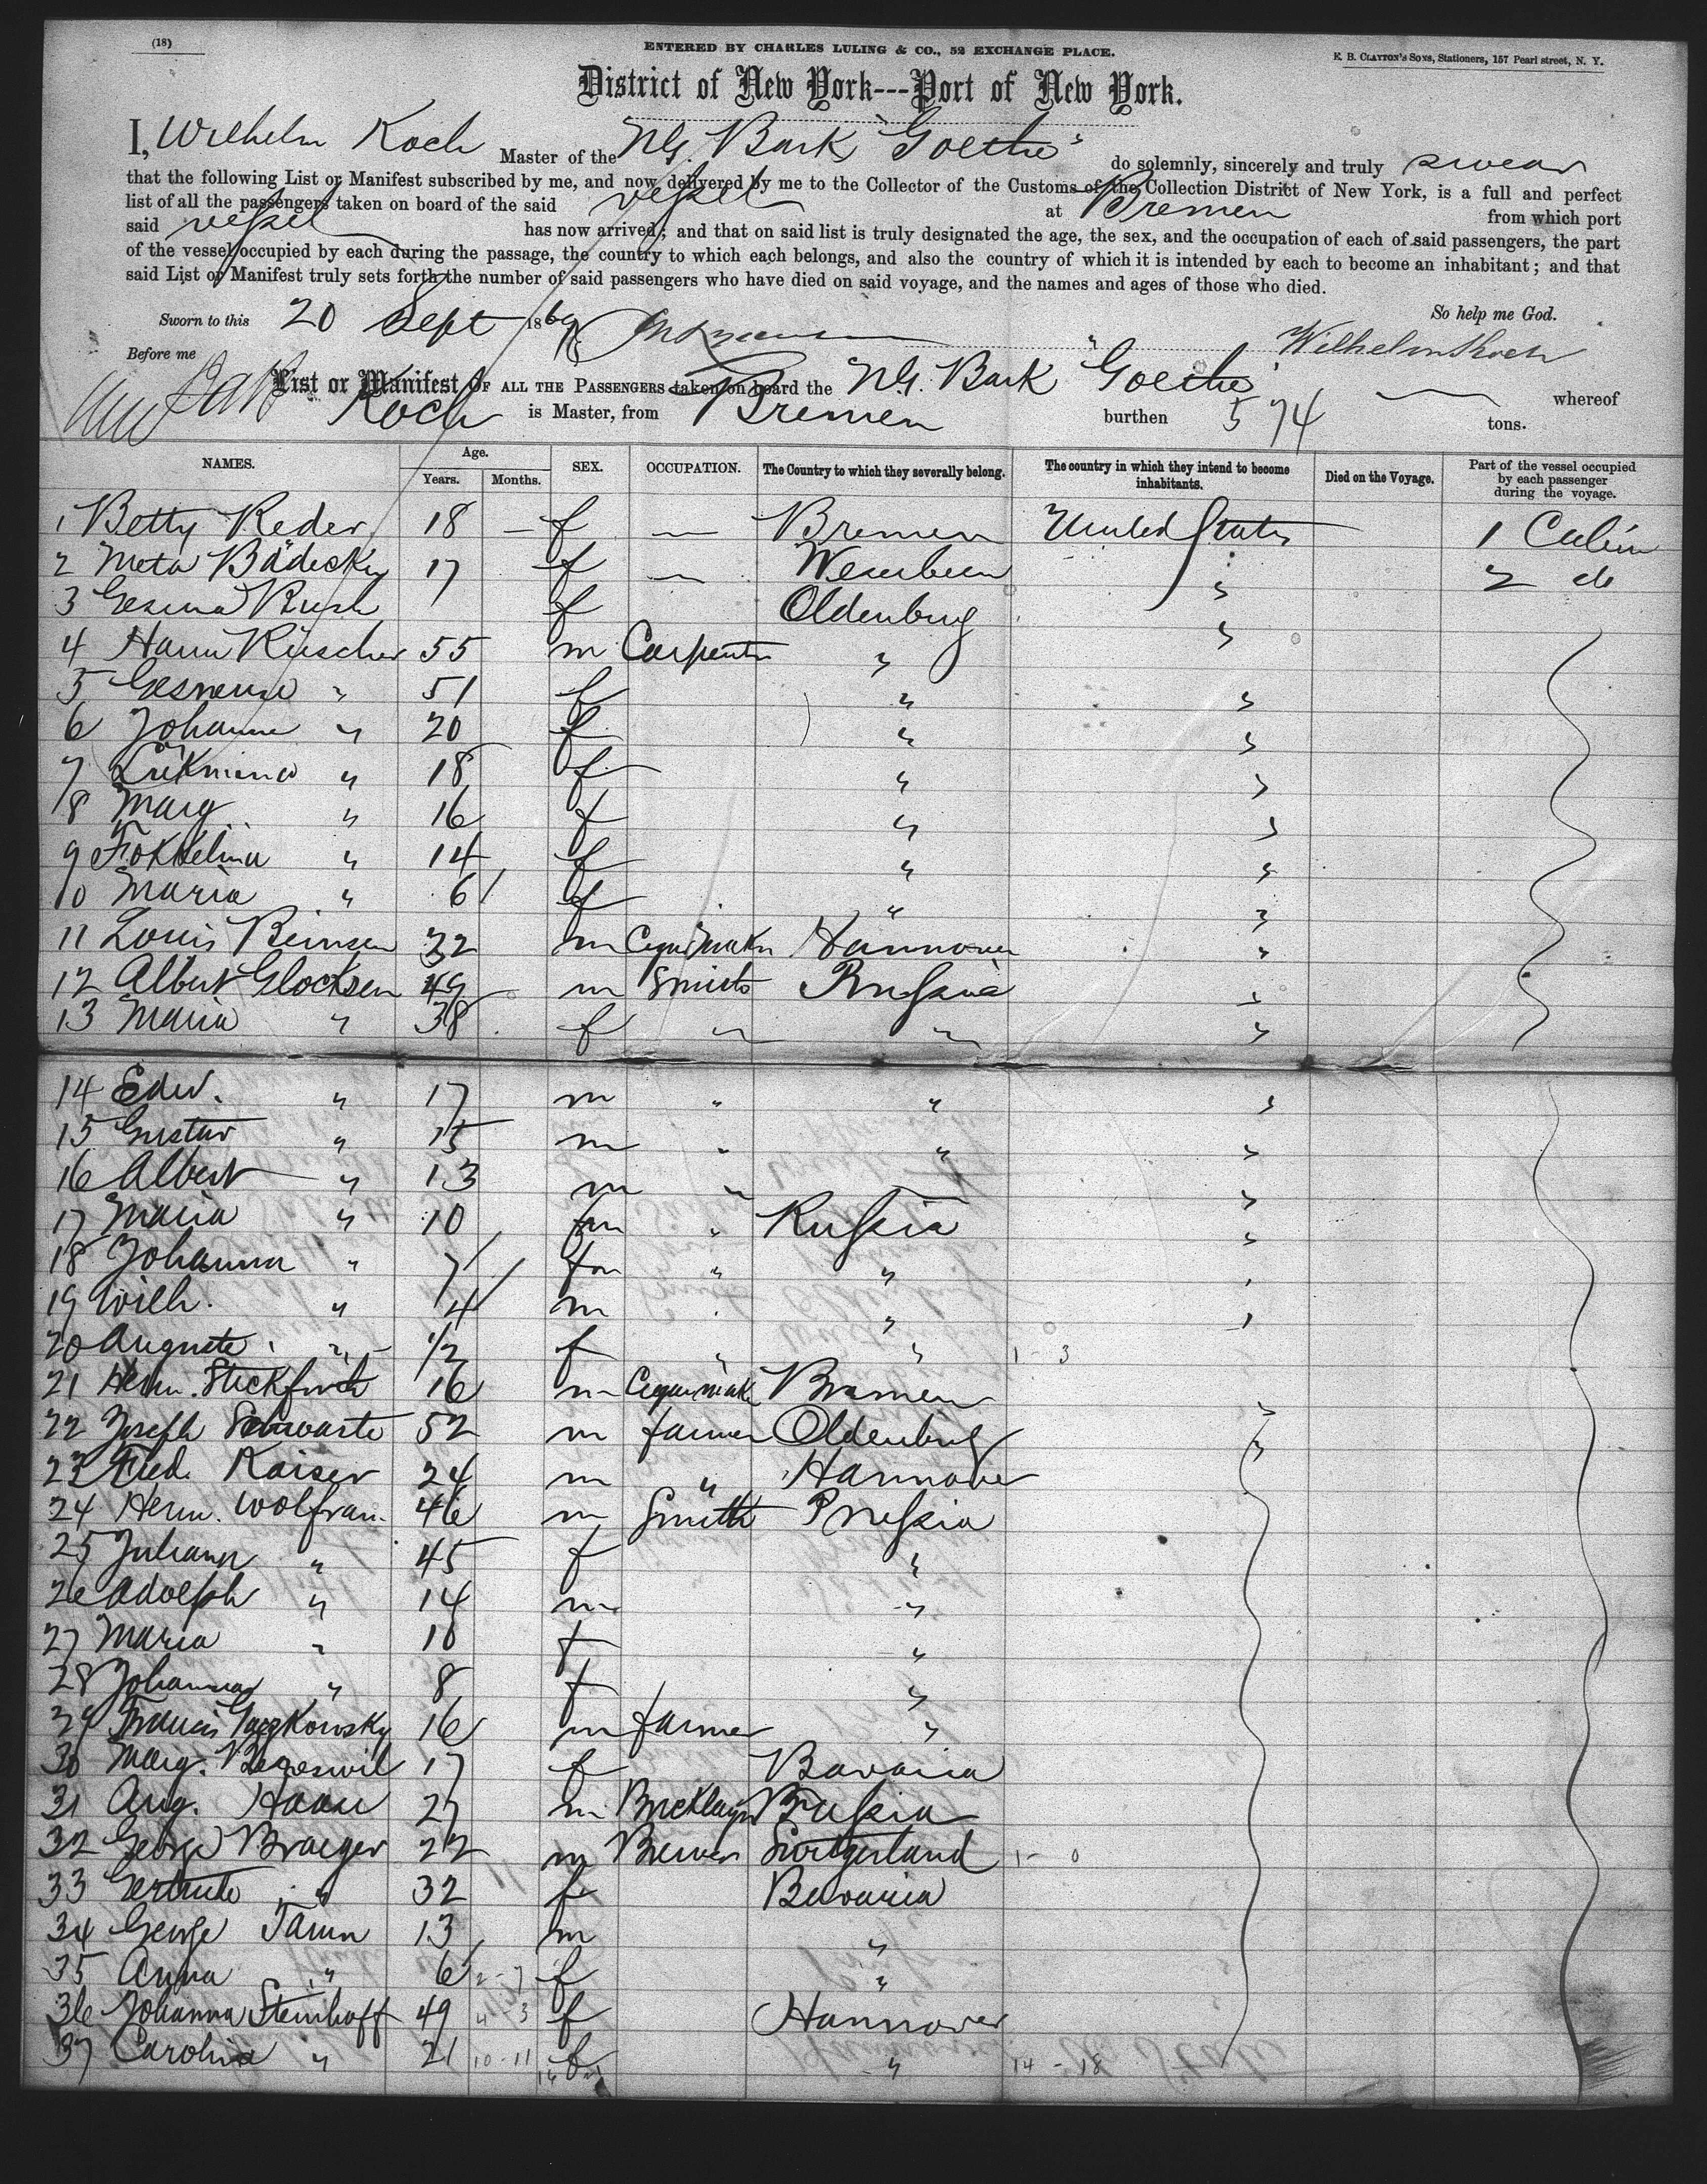 (18)
ENTERED BY CHARLES LULING & CO., 52 EXCHANGE PLACE.
E. B. CLAYTON'S SONS, Stationers, 157 Pearl street, N. Y.
District of New York---Port of New York.
I, Wilhelm Koch Master of the NG. Bark "Goethe" do solemnly, sincerely and truly swear
that the following List or Manifest subscribed by me, and now delivered by me to the Collector of the Customs of the Collection District of New York, is a full and perfect
list of all the passengers taken on board of the said vessel at Bremen from which port
said vessel has now arrived; and that on said list is truly designated the age, the sex, and the occupation of each of said passengers, the part
of the vessel occupied by each during the passage, the country to which each belongs, and also the country of which it is intended by each to become an inhabitant; and that
said List or Manifest truly sets forth the number of said passengers who have died on said voyage, and the names and ages of those who died.
Sworn to this 20 Sept 1869 So help me God.
Before me Wilhelm Koch
List or Manifest OF ALL THE PASSENGERS taken on board the NG. Bark "Goethe" whereof
Koch is Master, from Bremen burthen 574 tons.
NAMES. Age. Years. Months. SEX. OCCUPATION. The Country to which they severally belong. The country in which they intend to become inhabitants. Died on the Voyage. Part of the vessel occupied by each passenger during the voyage.
1 Betty Reder 18 — f — Bremen United States 1 Cabin
2 Meta 17 f — " 2 do
3 Gesina f Oldenburg "
4 Harm Rüscher 55 m Carpenter " "
5 " 51 f " "
6 Johanne " 20 f " "
7 " 18 f " "
8 Marg " 16 f " "
9 Fokkelina " 14 f " "
10 Maria " 6 f " "
11 Louis 32 m Hannover "
12 Albert Glocksen 49 m Smith Prussia "
13 Maria " 38 f " " "
14 Edw. " 17 m " " "
15 Gustav " 15 m " " "
16 Albert " 13 m " "
17 Maria " 10 " Russia "
18 Johanna " 7 " " "
19 Wilh. " 4 m " "
20 Auguste " 1/2 f " " 1 - 3
21 Herm. 16 m Bremen "
22 Joseph Schwarte 52 m farmer Oldenburg "
23 Fred. Kaiser 24 m " Hannover
24 Herm. Wolfram 46 m Smith Prussia
25 Juliann " 45 f "
26 Adolph " 14 m "
27 Maria " 10 f "
28 Johanna " 8 f "
29 16 m farmer "
30 Marg. 17 f Bavaria
31 Aug. 27 m Bricklayer Prussia
32 George Braeger 22 m Brewer Switzerland 1 - 0
33 " 32 f Bavaria
34 George 13 m "
35 Anna " 6 2 - 7 f "
36 Johanna Steinhoff 49 4 - 3 f Hannover
37 Carolina " 21 10 - 11 f " 14 - 18